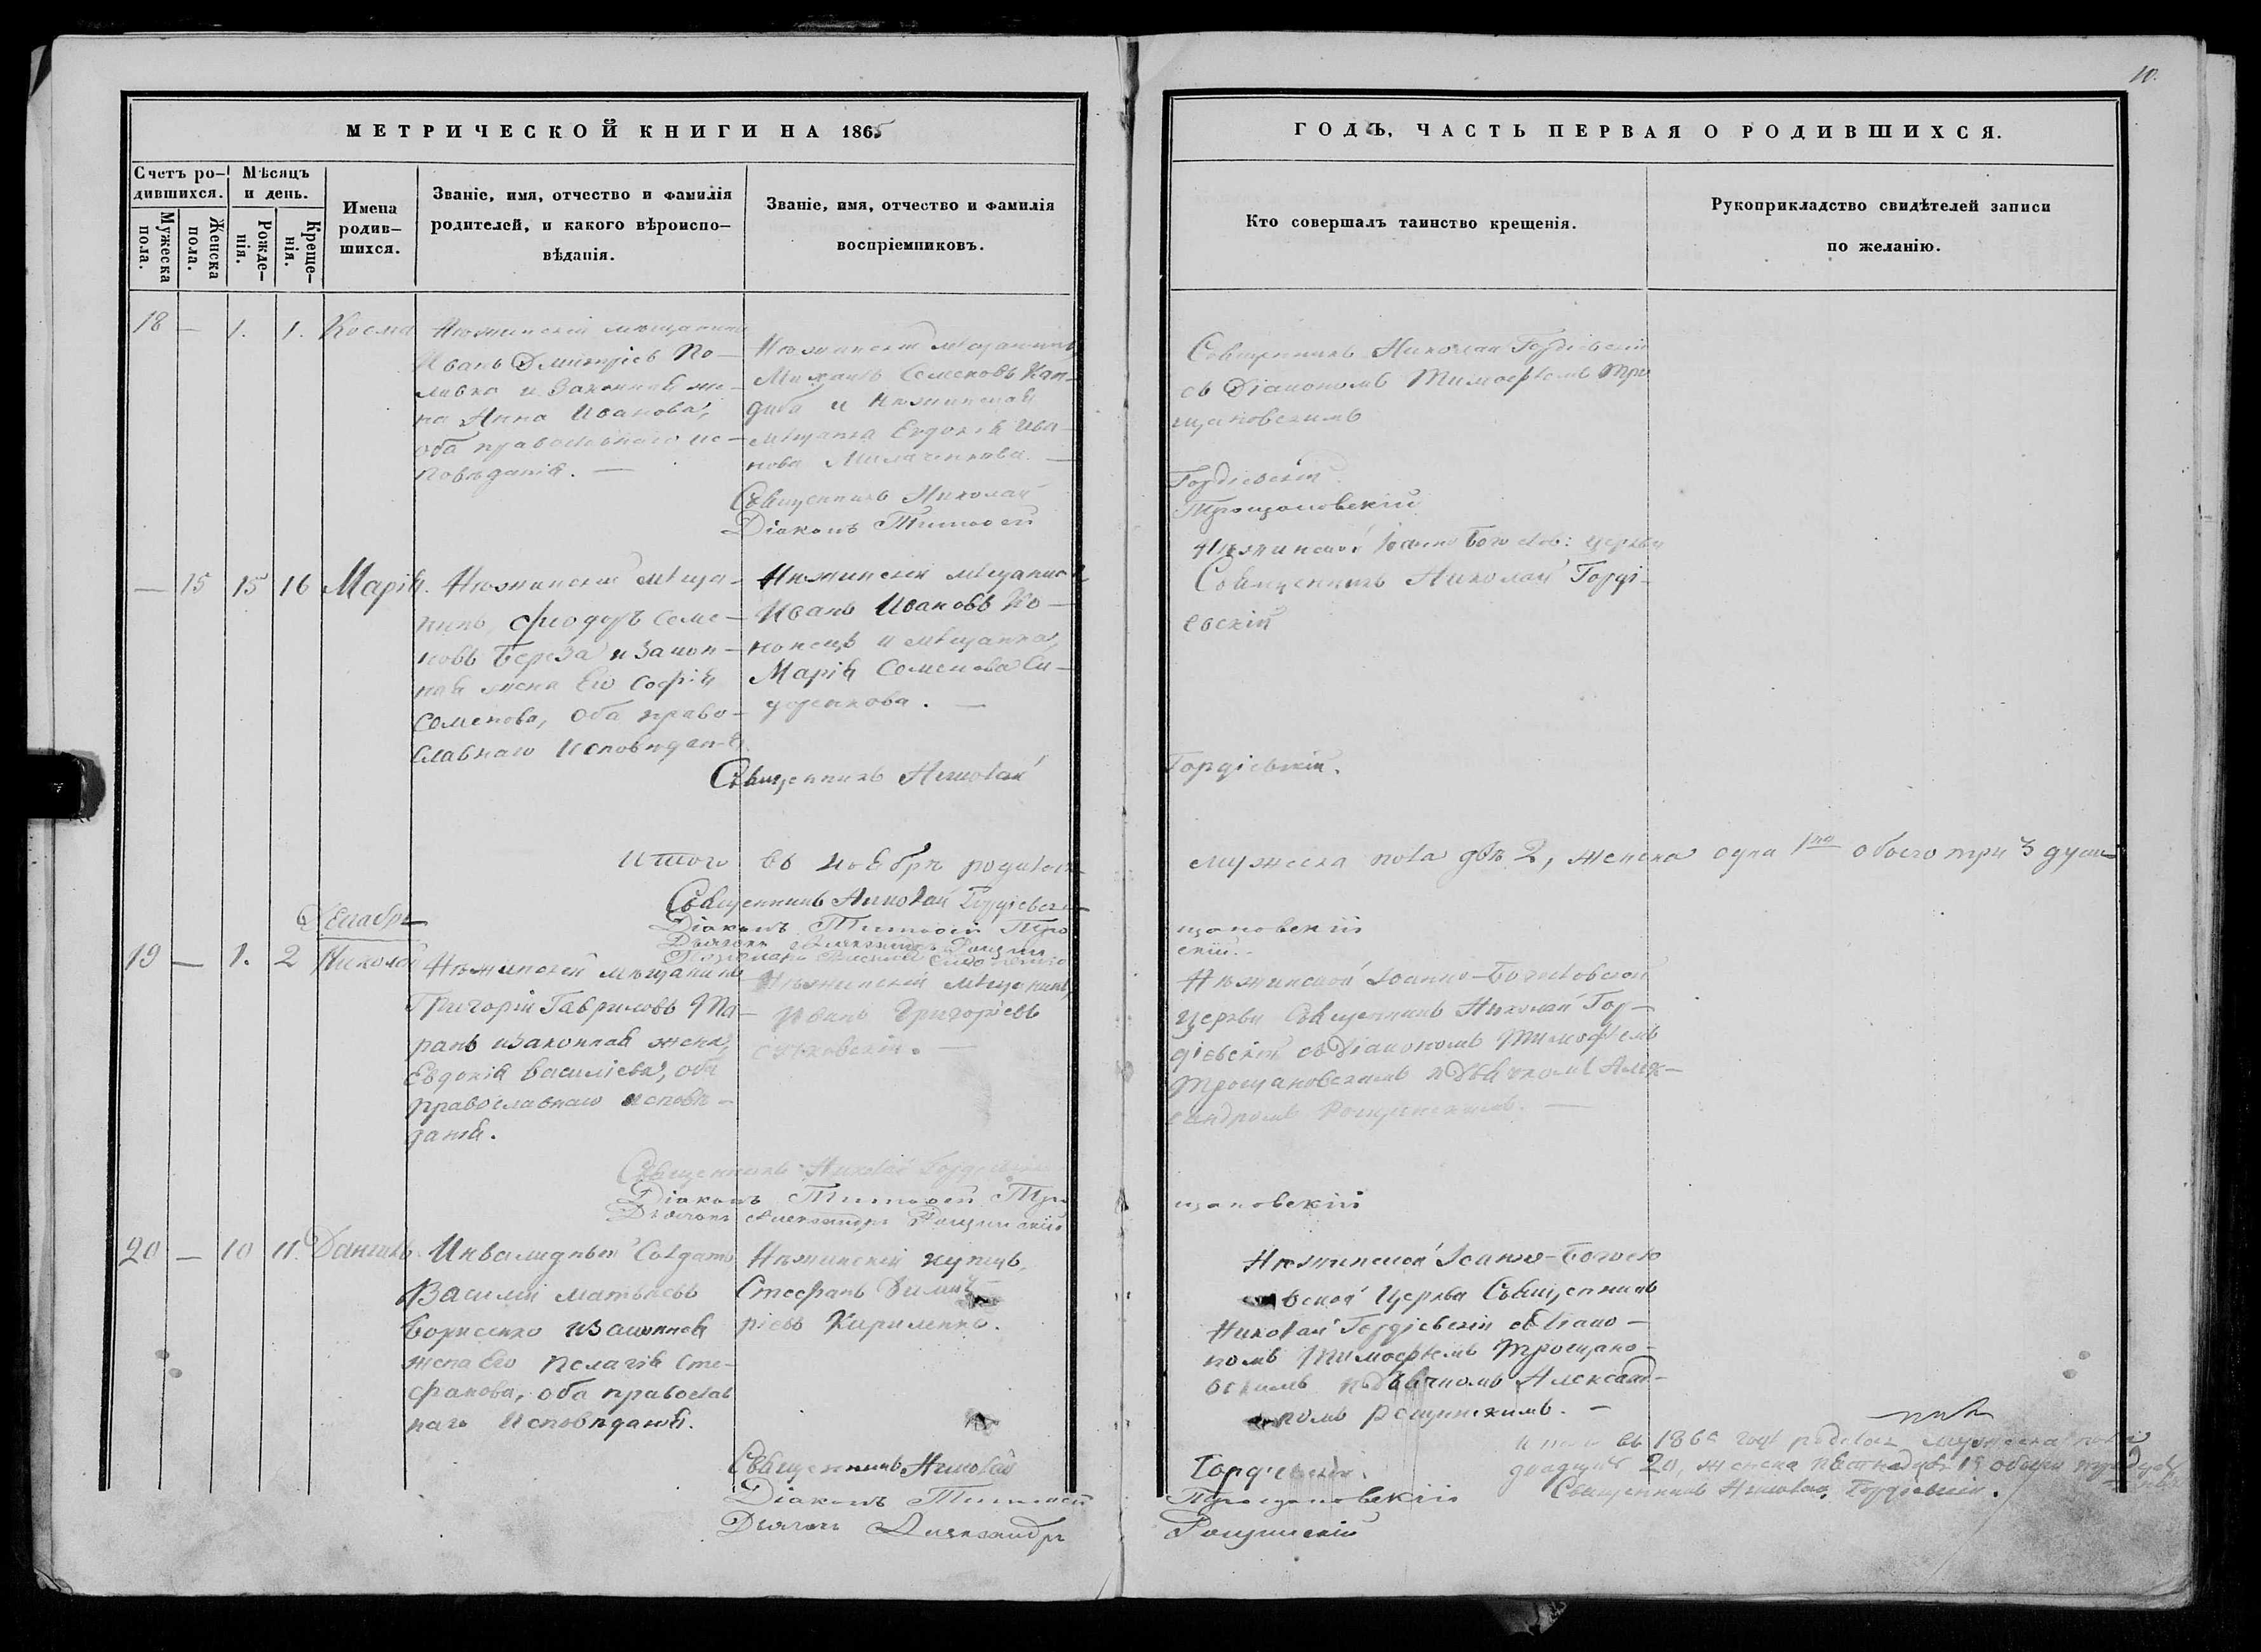 10.
МЕТРИЧЕСКОЙ КНИГИ НА 1865
ГОДЪ, ЧАСТЬ ПЕРВАЯ О РОДИВШИХСЯ.
Счетъ ро-
дившихся.
Мужеска
пола.
Женска
пола.
Мѣсяцъ
и день.
Рожде-
нія.
Креще-
нія.
Имена
родив-
шихся.
Званіе, имя, отчество и фамилія
родителей, и какого вѣроиспо-
вѣданія.
Званіе, имя, отчество и фамилія
воспріемниковъ.
Кто совершалъ таинство крещенія.
Рукоприкладство свидѣтелей записи
по желанію.
18 — 1. 1. Косма
Нѣжинскій мѣщанинъ
Иванъ Дмитріевъ По-
ливко и Законная же-
на Анна Иванова,
оба православнаго ис-
повѣданія. —
Нѣжинскій мѣщанинъ
Семеновъ Кан-
диба и Нѣжинская
мѣщанка Евдокія Ива-
нова
Священникъ Николай Гордіевскій
съ Діакономъ Тимофѣемъ Тро
щановскимъ
Священникъ Николай
Гордіевскій
Діаконъ Тимоѳей
Трощановскій
— 15 15 16 Марія.
Нѣжинскій мѣща-
нинъ Феодоръ Семе-
новъ Береза и закон-
ная жена Его Софія
Семенова, оба право-
славнаго Исповѣданія.
Нѣжинскій мѣщанинъ
Иванъ Ивановъ Ко-
нонецъ и мѣщанка
Марія Семенова Си-
доренкова. —
Нѣжинской Іоанно Богослов: церкви
Священникъ Николай Горді-
евскій
Священникъ Николай
Гордіевскій.
Итого въ ноябрѣ родилось
мужеска пола два 2, женска одна 1на обоего три 3 души
Священникъ Николай Гордіевскій
Діаконъ Тимоѳей Тро
щановскій
Дьячокъ Александръ Рощин
скій.
Декабрь
19 — 1. 2 Николай
Нѣжинскій мѣщанинъ
Григорій Гавриловъ Та-
ранъ и законная жена
Евдокія Василіева, оба
православнаго исповѣ-
данія.
Нѣжинскій мѣщанинъ
Григоріевъ
Нѣжинской Іоанно-Богословской
церкви Священникъ Николай Гор-
діевскій съ Діакономъ Тимофѣемъ
Трощановскимъ и Дьячкомъ Алек-
сандромъ Рощинскимъ. —
Священникъ Николай Гордіевскій
Діаконъ Тимоѳей Тро
щановскій
Дьячокъ Александръ Рощинскій
20 — 10 11. Даніилъ.
Инвалидный Солдатъ
Василій Матвѣевъ
Борисенко и Законная
жена Его Пелагія Сте-
фанова, оба православ
наго Исповѣданія.
Нѣжинскій купецъ,
Стефанъ Димит
ріевъ Кириленко.
Нѣжинской Іоанно-Богосло
вской Церкви Священникъ
Николай Гордіевскій съ Діако-
номъ Тимофѣемъ Трощано-
вскимъ и Дьячкомъ Александ-
ромъ Рощинскимъ. —
Священникъ Николай
Гордіевскій.
Діаконъ Тимоѳей
Трощановскій
Дьячокъ Александръ
Рощинскій
родилось мужеска пола
двадцать 20, женска
Священникъ Николай Гордіевскій.